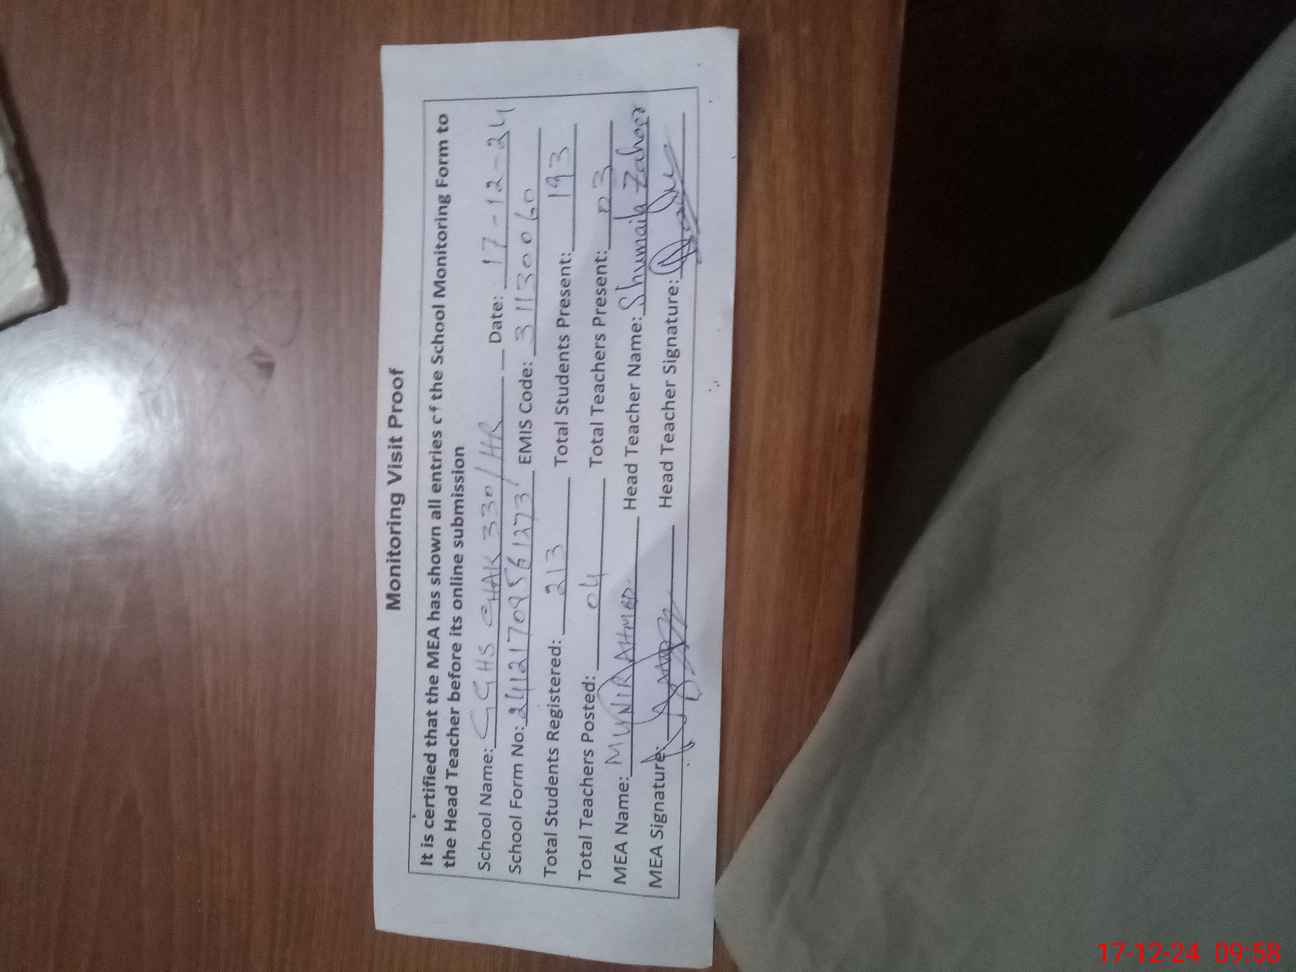 Monitoring Visit Proof
It is certified that the MEA has shown all entries of the School Monitoring Form to
the Head Teacher before its online submission
School Name: GGHS CHAK 330/HR Date: 17-12-24
School Form No: 24121709561273 EMIS Code: 31130060
Total Students Registered: 213 Total Students Present: 193
Total Teachers Posted: 04 Total Teachers Present: 03
MEA Name: MUNIR AHMED Head Teacher Name: Shumaila Zahoor
MEA Signature: Head Teacher Signature:
17-12-24 09:58